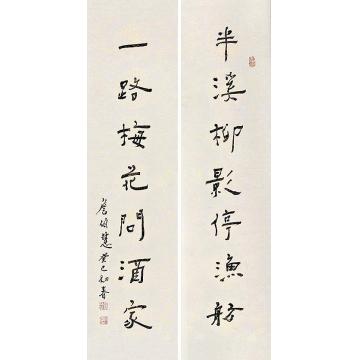 半溪柳影停漁船
一路梅花問酒家
癸巳初春